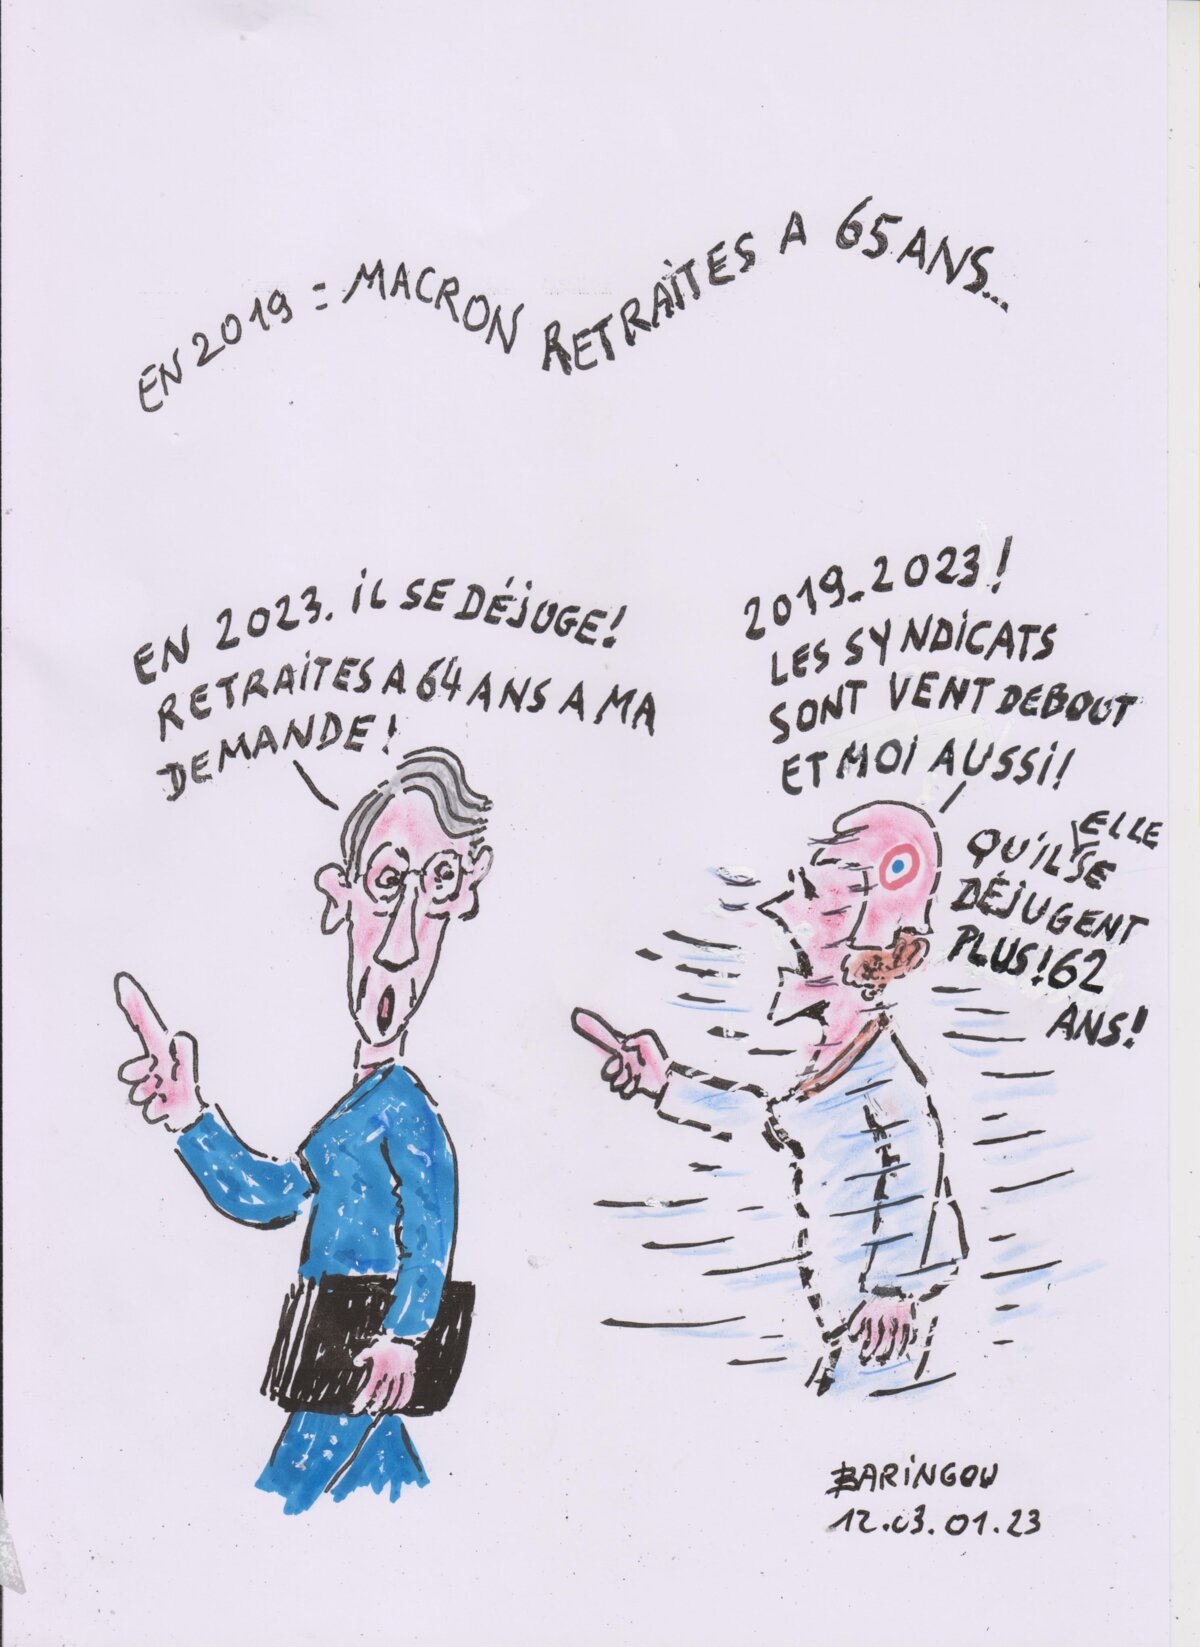 EN 2019 = MACRON RETRAITES A 65 ANS...
EN 2023. IL SE DÉJUGE!
RETRAITES A 64 ANS A MA
DEMANDE!
2019-2023!
LES SYNDICATS
SONT VENT DEBOUT
ET MOI AUSSI!
ELLE
QU'IL SE
DÉJUGENT
PLUS! 62
ANS!
BARINGOU
12.03.01.23